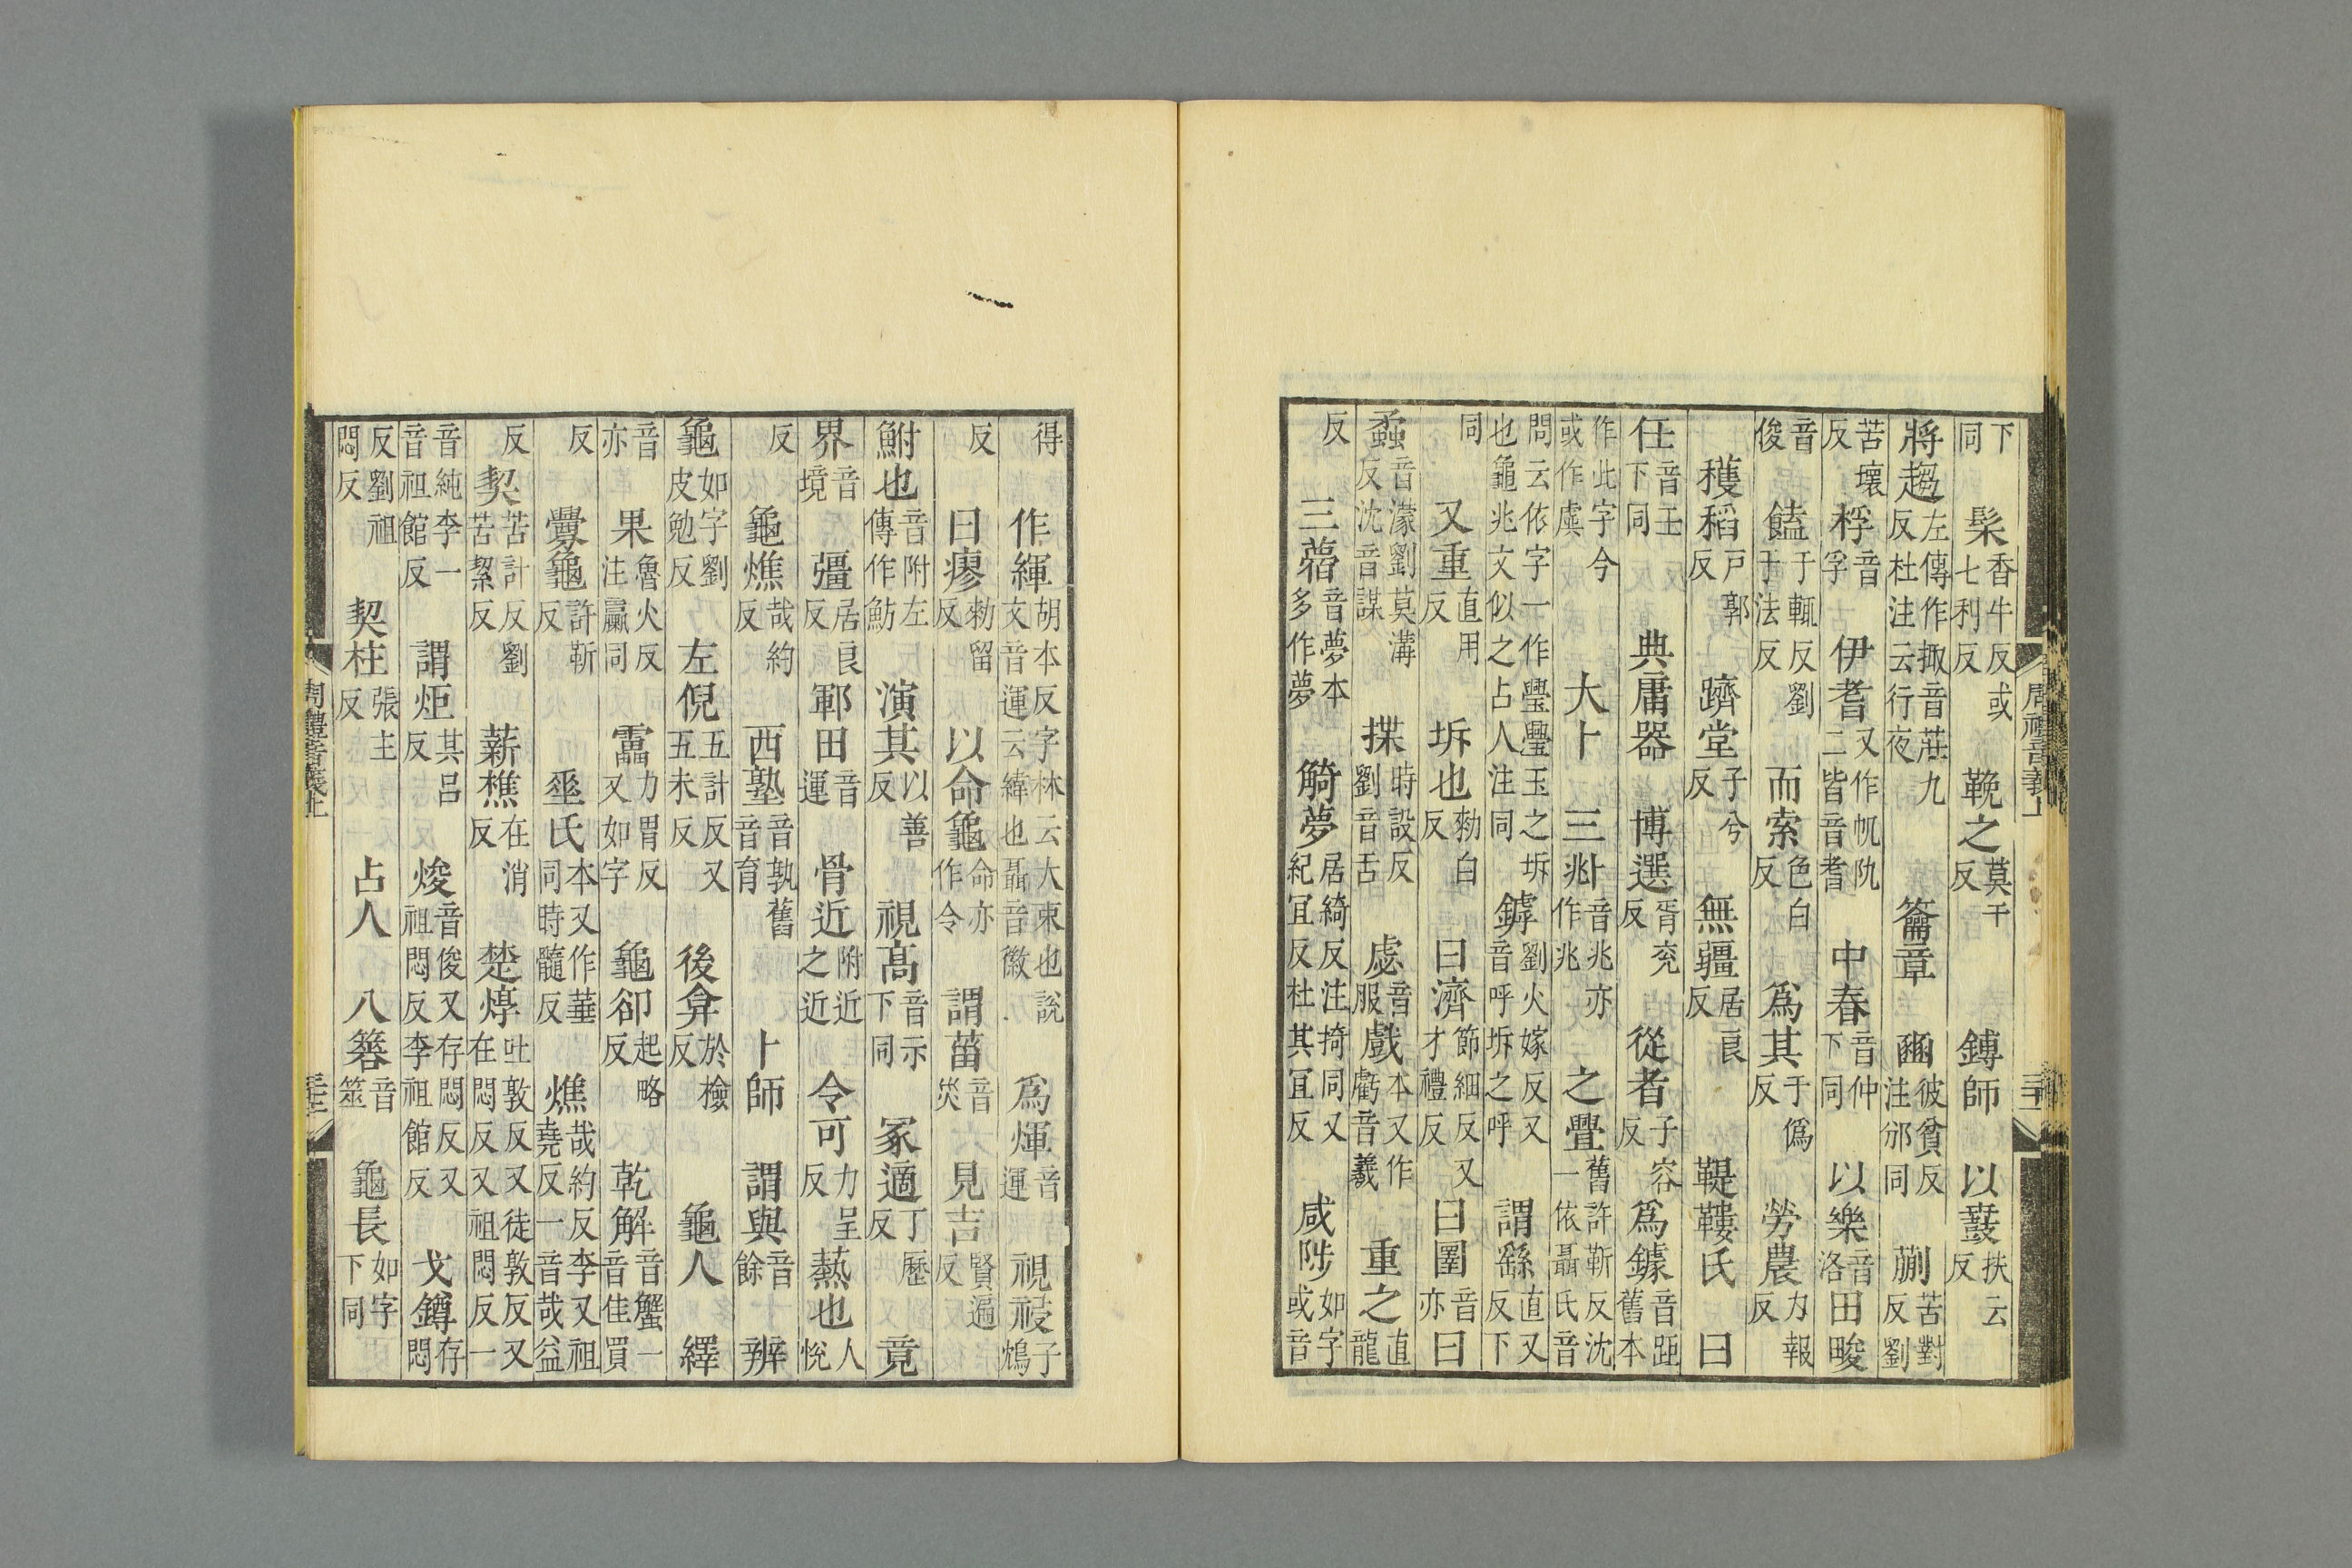 下同　髹香牛反或七利反　鞔之莫干反　鎛師　以鼖扶云反
將趨左傳作掫音莊九反杜注云行夜　籥章　豳彼貧反注邠同　蒯苦對反劉
苦壞反　桴音孚　伊耆又作帆阠二皆音耆　中春音仲下同　以樂音洛　田畯
音俊　饁于輒反劉于法反　而索色白反　爲其于僞反　勞農力報反
穫稻戸郭反　躋堂子兮反　無疆居良反　鞮鞻氏　曰
任音壬下同　典庸器　博選胥兖反　從者子容反　爲鐻音距舊本
作此字今或作虡　大卜　三𠧞音兆亦作兆　之舋舊許靳反沈一依聶氏音
問云依字一作璺璺玉之坼也龜兆文似之占人注同　罅劉火嫁反又音呼坼之呼　謂繇直又反下
同　又重直用反　坼也勑白反　曰濟節細反又才禮反　曰圛音亦　曰
蟊音濛劉莫溝反沈音謀　揲時設反劉音舌　虙音服　戲本又作虧音羲　重之直龍
反　三㝱音夢本多作夢　觭夢居綺反注掎同又紀宜反杜其宜反　咸陟如字或音
周禮音義上
得　作緷胡本反字林云大束也說文音運云緯也聶音徽　爲煇音運　視祲子鴆
反　曰瘳勑留反　以命龜命亦作令　謂菑音災　見吉賢遍反
鮒也音附左傳作魴　演其以善反　視高音示下同　冢適丁歷反　竟
界音境　彊居良反　鄆田音運　骨近附近之近　令可力呈反　蓺也人悅
反　龜燋哉約反　西塾音孰舊音育　卜師　謂與音餘　辨
龜如字劉皮勉反　左倪五計反又五未反　後弇於檢反　龜人　繹
音亦　果魯火反注蠃同　靁力胃反又如字　龜卻起略反　乾解音蟹一音佳買
反　釁龜許靳反　菙氏本又作華同時髓反　燋哉約反李又祖堯反一音哉益
反　契苦計反劉苦絜反　薪樵在消反　楚焞吐敦反又徒敦反又在悶反又祖悶反一
音純李一音祖館反　謂炬其呂反　焌音俊又存悶反又祖悶反李祖館反　戈鐏存悶
反劉祖悶反　契柱張主反　占人　八簭音筮　龜長如字下同
周禮音義上